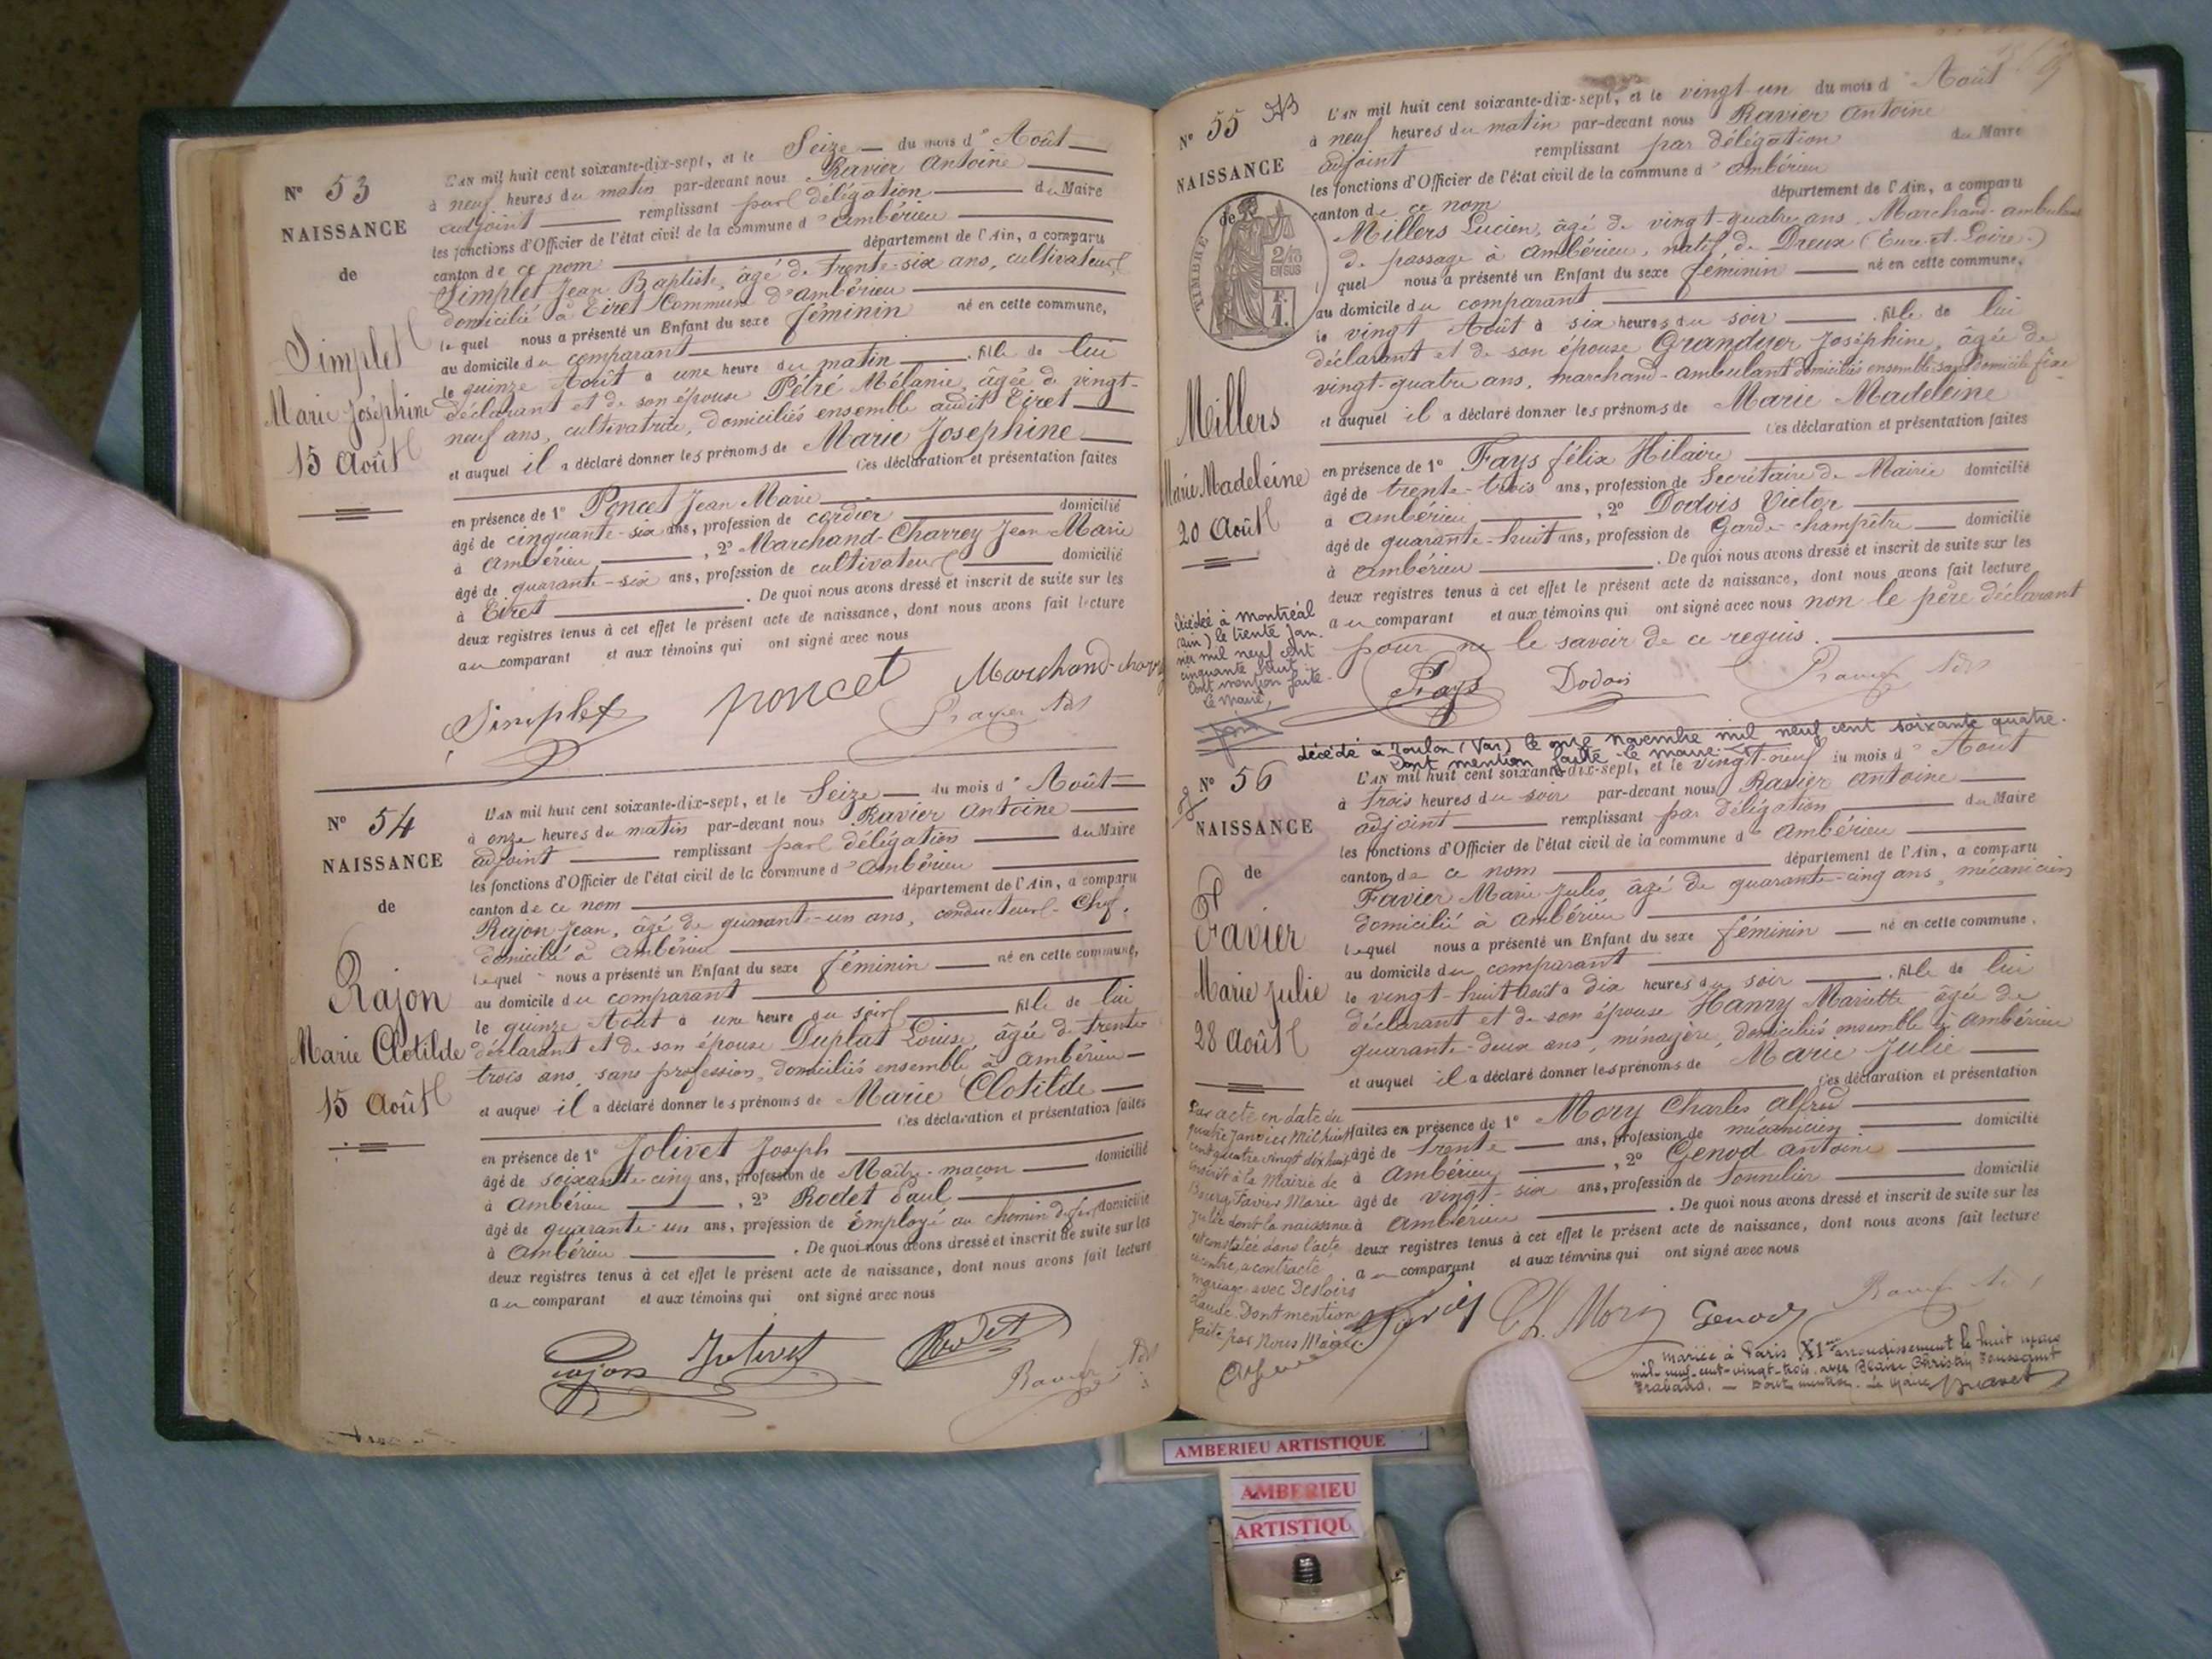 N° 53
NAISSANCE
de
Simplet
Marie Joséphine
15 Août
L'AN mil huit cent soixante-dix-sept, et le Seize du mois d' Août
à neuf heures du matin par-devant nous Ravier Antoine
adjoint remplissant par délégation du Maire
les fonctions d'Officier de l'état civil de la commune d'Ambérieu
canton de ce nom département de l'Ain, a comparu
Simplet Jean Baptiste, âgé de trente-six ans, cultivateur
domicilié à Eiret Commune d'ambérieu
lequel nous a présenté un Enfant du sexe féminin né en cette commune,
au domicile du comparant
le quinze Août à une heure du matin, fille de lui
déclarant et de son épouse Pétré Mélanie, âgée de vingt-
neuf ans, cultivatrice, domiciliés ensemble audit Eiret
et auquel il a déclaré donner les prénoms de Marie Josephine
Ces déclaration et présentation faites
en présence de 1° Poncet Jean Marie
âgé de cinquante-six ans, profession de cordier domicilié
à Ambérieu, 2° Marchand-Charrey Jean Marie
âgé de quarante-six ans, profession de cultivateur domicilié
à Eiret. De quoi nous avons dressé et inscrit de suite sur les
deux registres tenus à cet effet le présent acte de naissance, dont nous avons fait lecture
au comparant et aux témoins qui ont signé avec nous
Simplet poncet Marchand-charrey
Ravier Adt
N° 54
NAISSANCE
de
Rajon
Marie Clotilde
15 Août
L'AN mil huit cent soixante-dix-sept, et le Seize du mois d' Août
à onze heures du matin par-devant nous Ravier Antoine
adjoint remplissant par délégation du Maire
les fonctions d'Officier de l'état civil de la commune d'Ambérieu
canton de ce nom département de l'Ain, a comparu
Rajon Jean, âgé de quarante-un ans, conducteur-Chef,
domicilié à Ambérieu
lequel nous a présenté un Enfant du sexe féminin né en cette commune,
au domicile du comparant
le quinze Août à une heure du soir fille de lui
déclarant et de son épouse Duplat Louise, âgée de trente
trois ans, sans profession, domiciliés ensemble à Ambérieu
et auquel il a déclaré donner les prénoms de Marie Clotilde
Ces déclaration et présentation faites
en présence de 1° Jolivet Joseph
âgé de soixante-cinq ans, profession de Maître-maçon domicilié
à Ambérieu, 2° Rodet Paul
âgé de quarante-un ans, profession de Employé au chemin de fer domicilié
à Ambérieu. De quoi nous avons dressé et inscrit de suite sur les
deux registres tenus à cet effet le présent acte de naissance, dont nous avons fait lecture
au comparant et aux témoins qui ont signé avec nous
Rajon Jolivet Rodet
Ravier Adt
N° 55
NAISSANCE
de
TIMBRE
2/10
EN SUS
F.
1.
Millers
Marie Madeleine
20 Août
L'AN mil huit cent soixante-dix-sept, et le vingt-un du mois d' Août
à neuf heures du matin par-devant nous Ravier Antoine
adjoint remplissant par délégation du Maire
les fonctions d'Officier de l'état civil de la commune d'Ambérieu
canton de ce nom département de l'Ain, a comparu
Millers Lucien, âgé de vingt-quatre ans, Marchand-ambulant
de passage à Ambérieu, natif de Dreux (Eure-et-Loire)
lequel nous a présenté un Enfant du sexe féminin né en cette commune,
au domicile du comparant
le vingt Août à six heures du soir, fille de lui
déclarant et de son épouse Grandyer Joséphine, âgée de
vingt-quatre ans, marchand-ambulant domiciliés ensemble sans domicile fixe
et auquel il a déclaré donner les prénoms de Marie Madeleine
Ces déclaration et présentation faites
en présence de 1° Fays félix Hilaire
âgé de trente-trois ans, profession de Secrétaire de Mairie domicilié
à Ambérieu, 2° Dodois Victor
âgé de quarante-huit ans, profession de Garde-champêtre domicilié
à Ambérieu. De quoi nous avons dressé et inscrit de suite sur les
deux registres tenus à cet effet le présent acte de naissance, dont nous avons fait lecture
au comparant et aux témoins qui ont signé avec nous non le père déclarant
pour ne le savoir de ce requis.
Fays Dodois Ravier Adt
Décédée à Montréal
(Ain) le trente Jan-
vier mil neuf cent
cinquante huit.
Dont mention faite.
Le maire,
décédé à Toulon (Var) le onze novembre mil neuf cent soixante quatre.
Dont mention faite le maire
N° 56
NAISSANCE
de
Favier
Marie Julie
28 Août
L'AN mil huit cent soixante-dix-sept, et le vingt-neuf du mois d' Août
à trois heures du soir par-devant nous Ravier Antoine
adjoint remplissant par délégation du Maire
les fonctions d'Officier de l'état civil de la commune d'Ambérieu
canton de ce nom département de l'Ain, a comparu
Favier Marie Jules, âgé de quarante-cinq ans, mécanicien
domicilié à Ambérieu
lequel nous a présenté un Enfant du sexe féminin né en cette commune,
au domicile du comparant
le vingt-huit Août à dix heures du soir, fille de lui
déclarant et de son épouse Hanry Mariette âgée de
quarante-deux ans, ménagère, domiciliés ensemble à Ambérieu
et auquel il a déclaré donner les prénoms de Marie Julie
Ces déclaration et présentation
faites en présence de 1° Mory Charles Alfred
âgé de trente ans, profession de mécanicien domicilié
à Ambérieu, 2° Genod Antoine
âgé de vingt-six ans, profession de Tonnelier domicilié
à Ambérieu. De quoi nous avons dressé et inscrit de suite sur les
deux registres tenus à cet effet le présent acte de naissance, dont nous avons fait lecture
au comparant et aux témoins qui ont signé avec nous
Favier Ch. Mory Genod Ravier Adt
Par acte en date du
quatre Janvier Mil huit
cent quatre vingt dix huit
inscrit à la Mairie de
Bourg, Favier Marie
Julie dont la naissance
est constatée dans l'acte
ci contre, a contracté
mariage avec Desloirs
Claude. Dont mention
faite par Nous Maire
Mariée à Paris XIme arrondissement le huit mars
mil-neuf-cent-vingt-trois, avec Blaise Christin Toussaint
Trabaud. — Dont mention. Le Maire
AMBERIEU ARTISTIQUE
AMBERIEU
ARTISTIQU